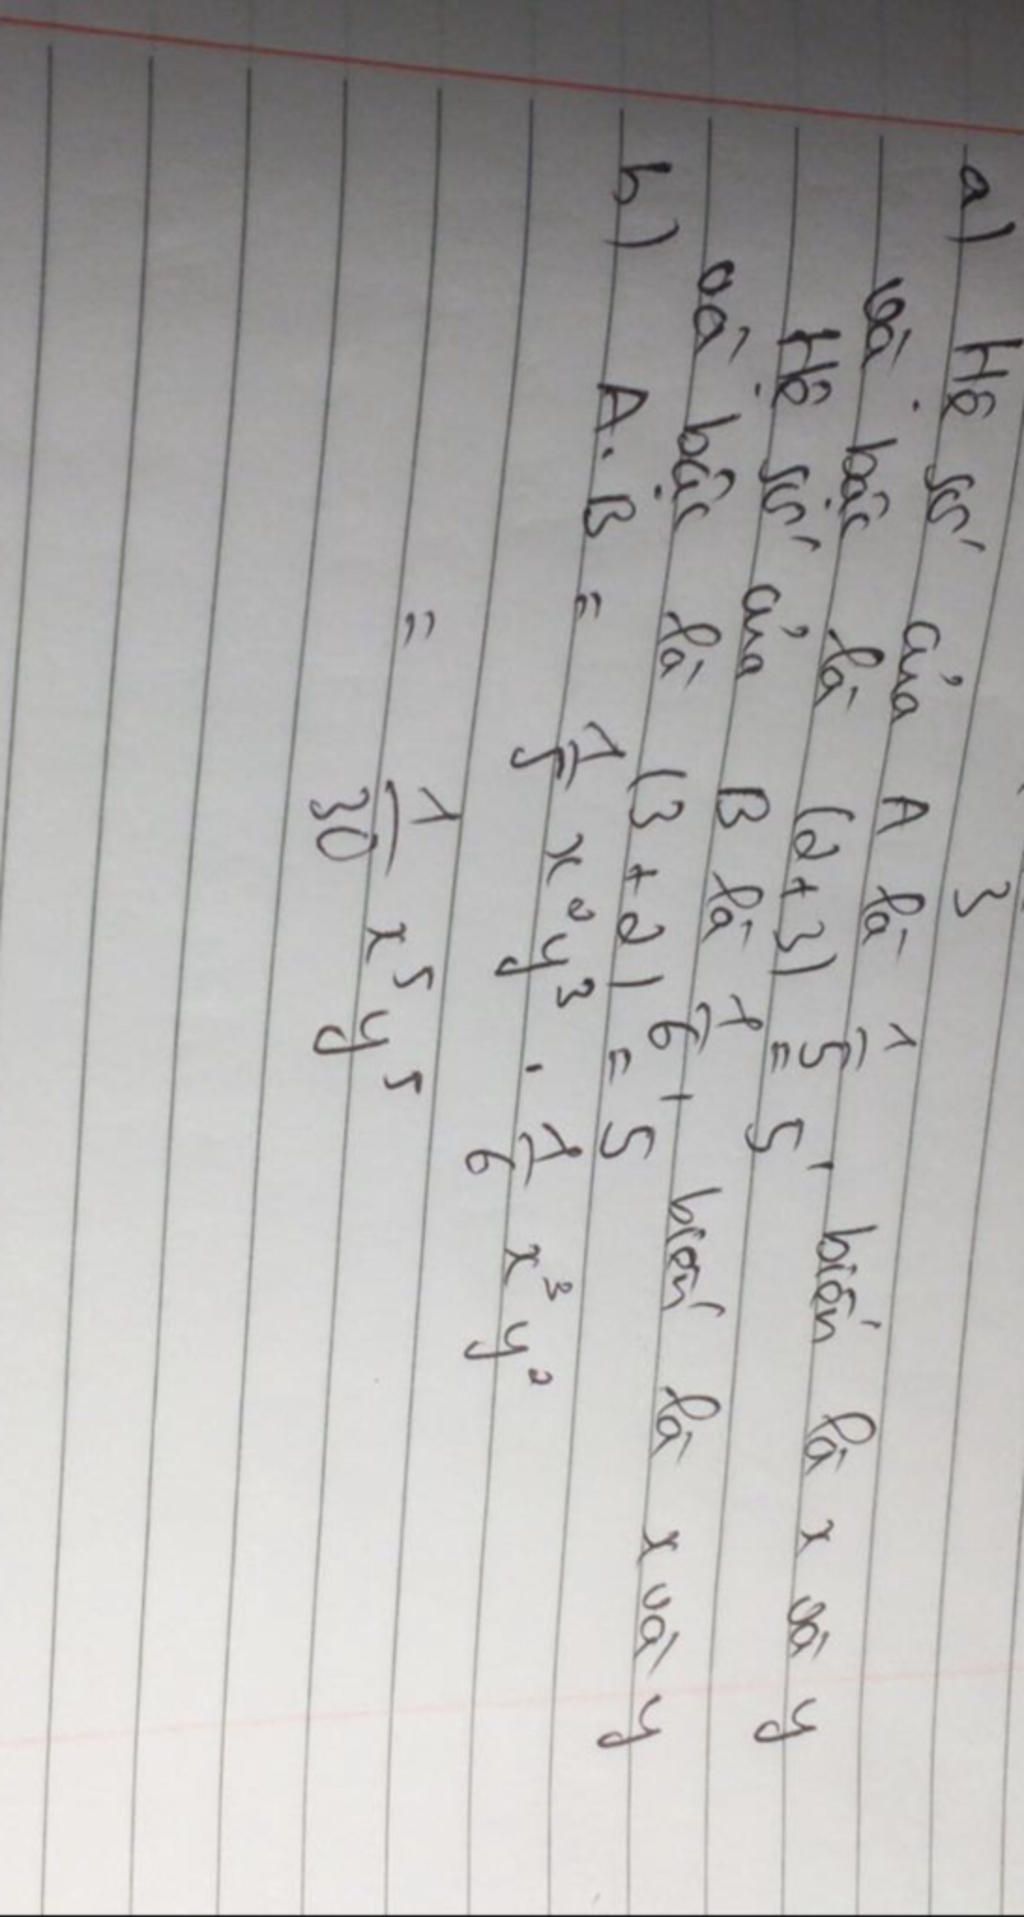 3
a) Hệ số của A là 1/5, biến là x và y
và bậc là (2+3) = 5
Hệ số của B là 1/6, biến là x và y
và bậc là (3+2) = 5
b) A.B = 1/5 x²y³ . 1/6 x³y²
= 1/30 x⁵y⁵